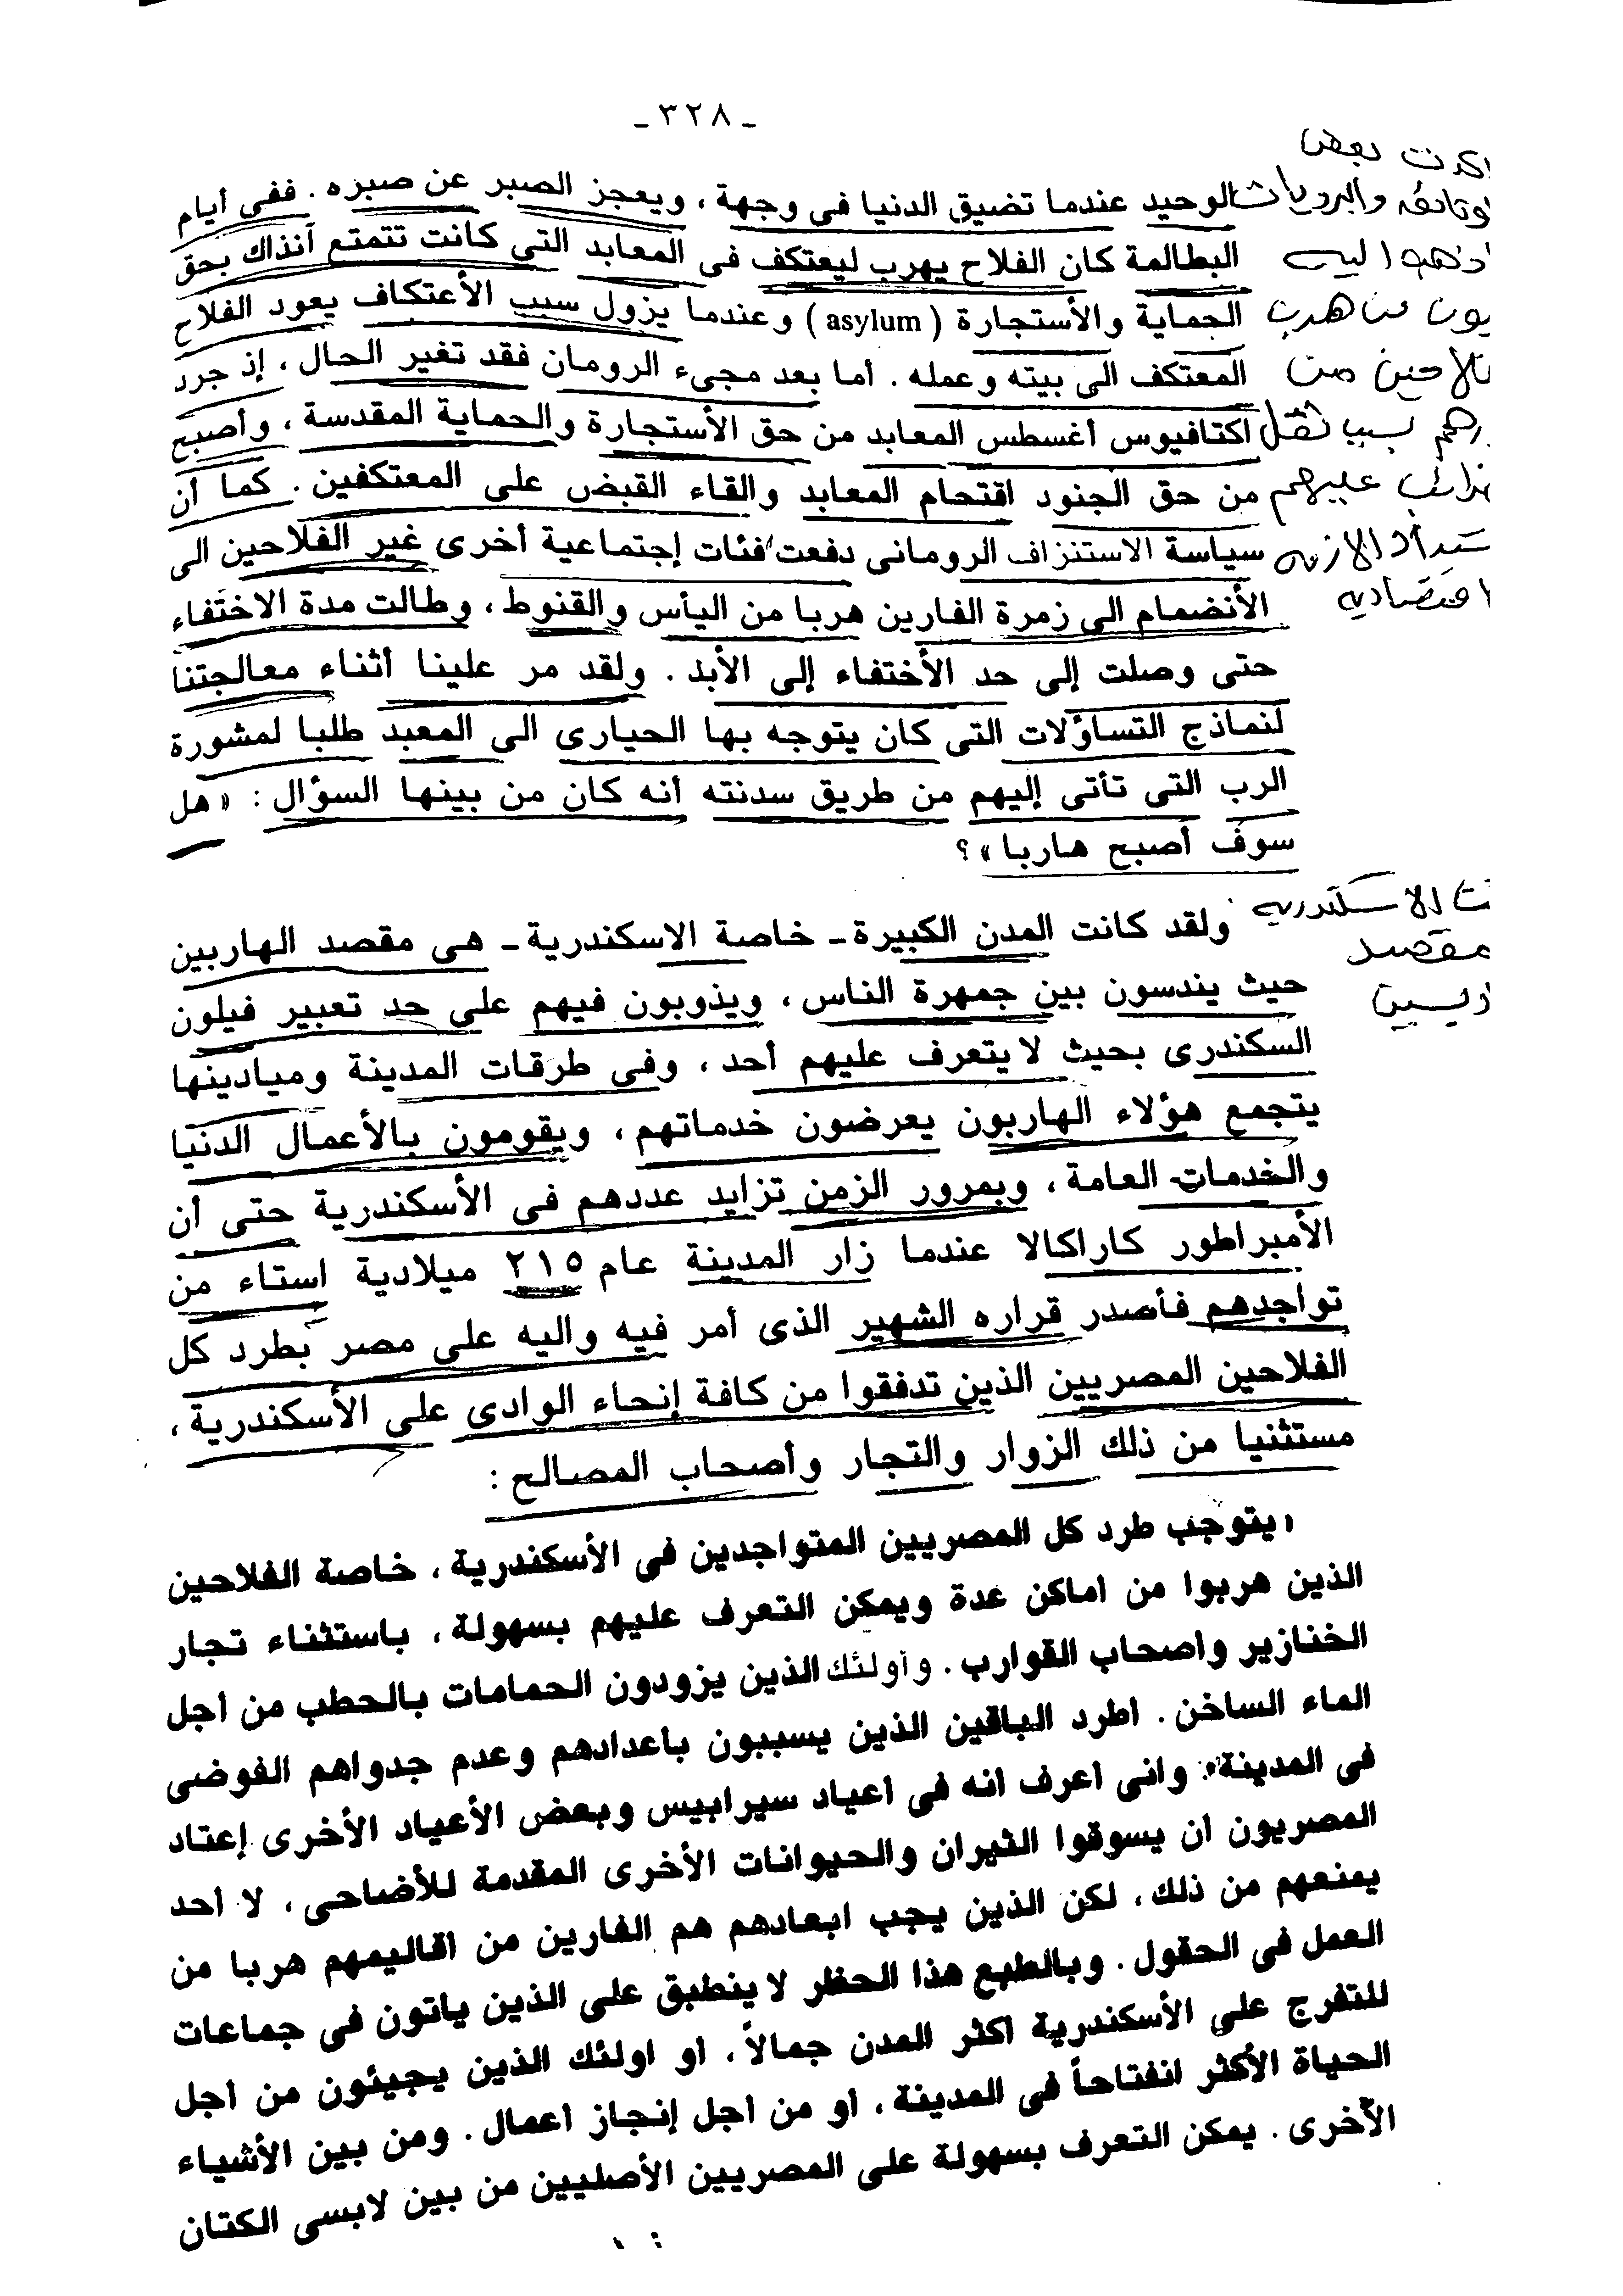 ـ ٣٢٨ ـ
الوحيد عندما تضيق الدنيا فى وجهة ، ويعجز الصبر عن صبره . ففى أيام
البطالمة كان الفلاح يهرب ليعتكف فى المعابد التى كانت تتمتع آنذاك بحق
الحماية والأستجارة ( asylum ) وعندما يزول سبب الأعتكاف يعود الفلاح
المعتكف الى بيته وعمله . أما بعد مجىء الرومان فقد تغير الحال ، إذ جرد
اكتافيوس أغسطس المعابد من حق الأستجارة والحماية المقدسة ، وأصبح
من حق الجنود اقتحام المعابد والقاء القبض على المعتكفين . كما أن
سياسة الاستنزاف الرومانى دفعت فئات إجتماعية أخرى غير الفلاحين الى
الأنضمام الى زمرة الفارين هربا من اليأس والقنوط ، وطالت مدة الاختفاء
حتى وصلت إلى حد الأختفاء إلى الأبد . ولقد مر علينا أثناء معالجتنا
لنماذج التساؤلات التى كان يتوجه بها الحيارى الى المعبد طلبا لمشورة
الرب التى تأتى إليهم من طريق سدنته أنه كان من بينها السؤال : « هل
سوف أصبح هاربا » ؟
ولقد كانت المدن الكبيرة ـ خاصة الاسكندرية ـ هى مقصد الهاربين
حيث يندسون بين جمهرة الناس ، ويذوبون فيهم على حد تعبير فيلون
السكندرى بحيث لا يتعرف عليهم أحد ، وفى طرقات المدينة وميادينها
يتجمع هؤلاء الهاربون يعرضون خدماتهم ، ويقومون بالأعمال الدنيا
والخدمات العامة ، وبمرور الزمن تزايد عددهم فى الأسكندرية حتى أن
الأمبراطور كاراكالا عندما زار المدينة عام ٢١٥ ميلادية استاء من
تواجدهم فأصدر قراره الشهير الذى أمر فيه واليه على مصر بطرد كل
الفلاحين المصريين الذين تدفقوا من كافة إنحاء الوادى على الأسكندرية ،
مستثنيا من ذلك الزوار والتجار وأصحاب المصالح :
« يتوجب طرد كل المصريين المتواجدين فى الأسكندرية ، خاصة الفلاحين
الذين هربوا من اماكن عدة ويمكن التعرف عليهم بسهولة ، باستثناء تجار
الخنازير واصحاب القوارب . وأولئك الذين يزودون الحمامات بالحطب من أجل
الماء الساخن . اطرد الباقين الذين يسببون بأعدادهم وعدم جدواهم الفوضى
فى المدينة . وانى اعرف انه فى اعياد سيرابيس وبعض الأعياد الأخرى إعتاد
المصريون ان يسوقوا الثيران والحيوانات الأخرى المقدمة للأضاحى ، لا احد
يمنعهم من ذلك ، لكن الذين يجب ابعادهم هم الفارين من اقاليمهم هربا من
العمل فى الحقول . وبالطبع هذا الحظر لا ينطبق على الذين يأتون فى جماعات
للتفرج على الأسكندرية اكثر المدن جمالاً ، او اولئك الذين يجيئون من أجل
الحياة الأكثر انفتاحاً فى المدينة ، أو من أجل إنجاز اعمال . ومن بين الأشياء
الأخرى . يمكن التعرف بسهولة على المصريين الأصليين من بين لابسى الكتان
بعض
والبرديات
بسبب ثقل
عليهم
الاسكندرية
مقصد